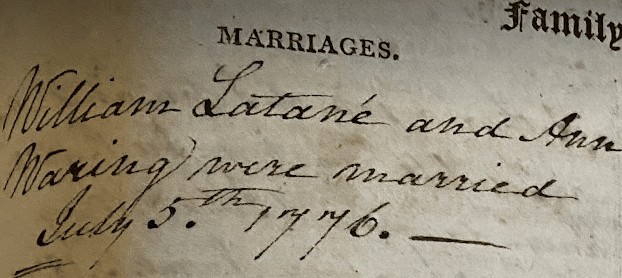 Family
MARRIAGES.
William Latané and Ann
Waring were married
July 5.th 1776. —